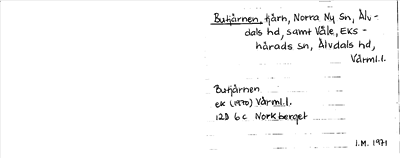 Butjärnen, tjärn, Norra Ny sn, Älv-
dals hd, samt Våle, Eks-
härads sn, Älvdals hd,
Värml.l.
Butjärnen
ek (1970) Värml.l.
12D 6c Norkberget
I.M. 1971